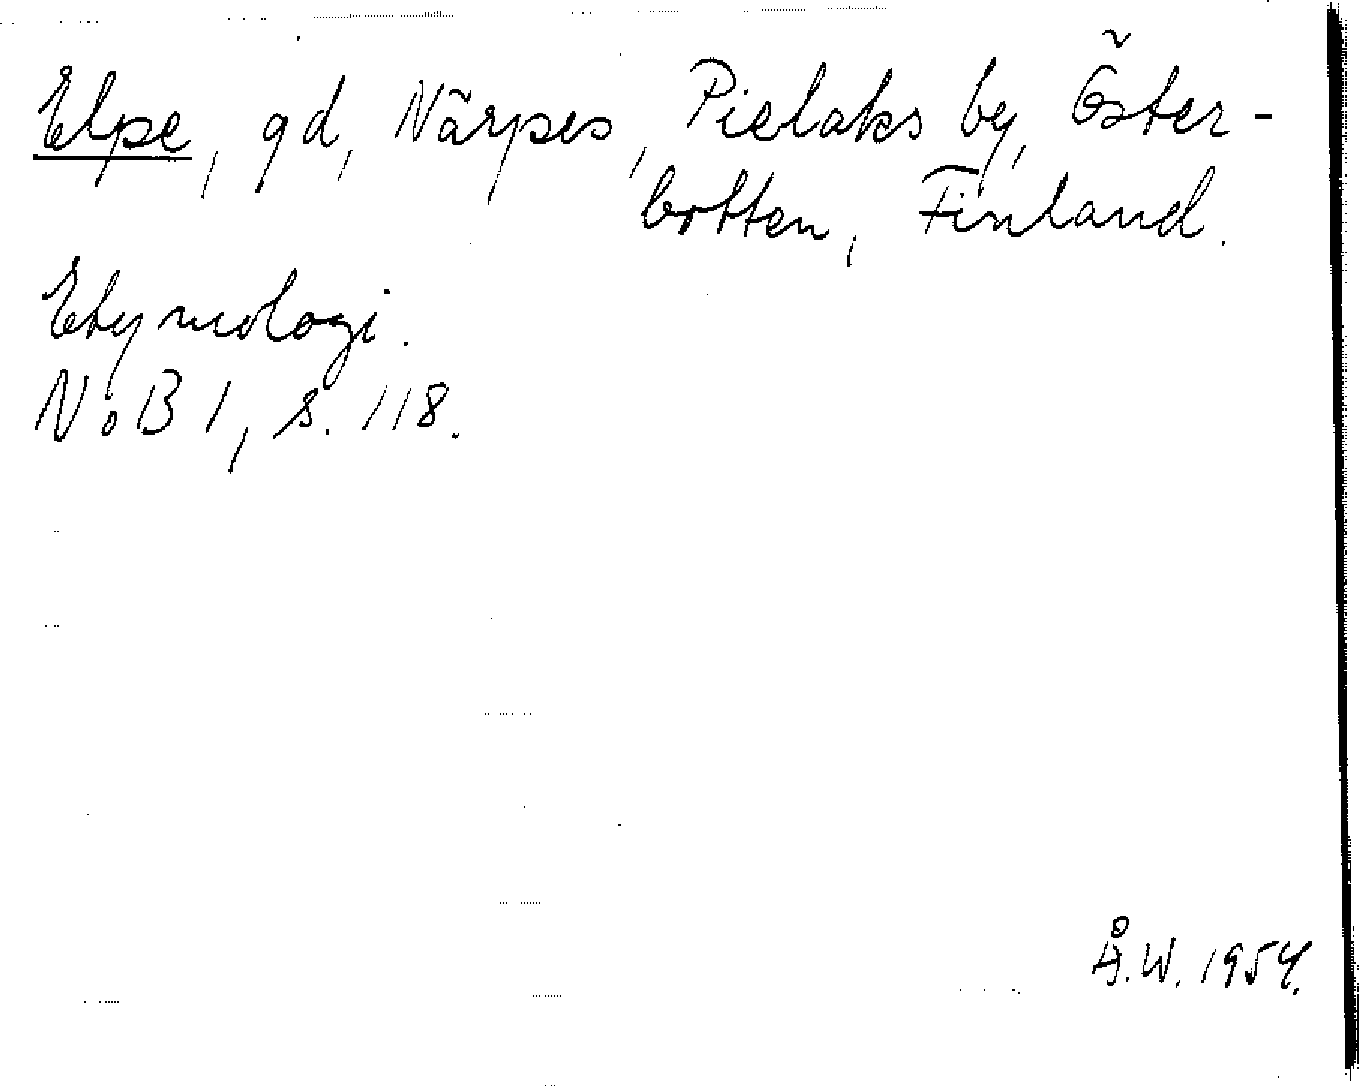 Elpe, gd, Närpes, Pielaks by, Öster-
botten, Finland.
Etymologi.
NoB 1, s. 118.
Å.W. 1954.